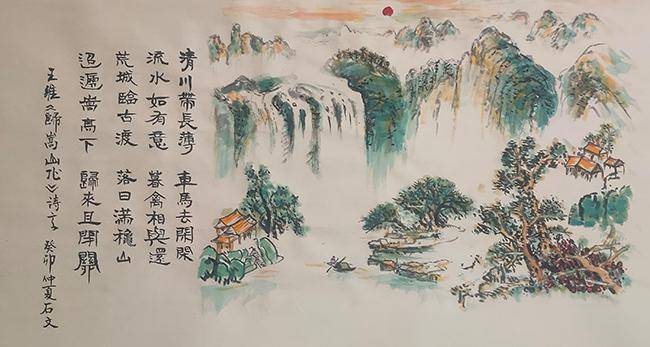 清川帶長薄　車馬去閑閑
流水如有意　暮禽相與還
荒城臨古渡　落日滿穐山
迢遞嵩高下　歸來且閉關
王維《歸嵩山作》詩意　癸卯仲夏石文